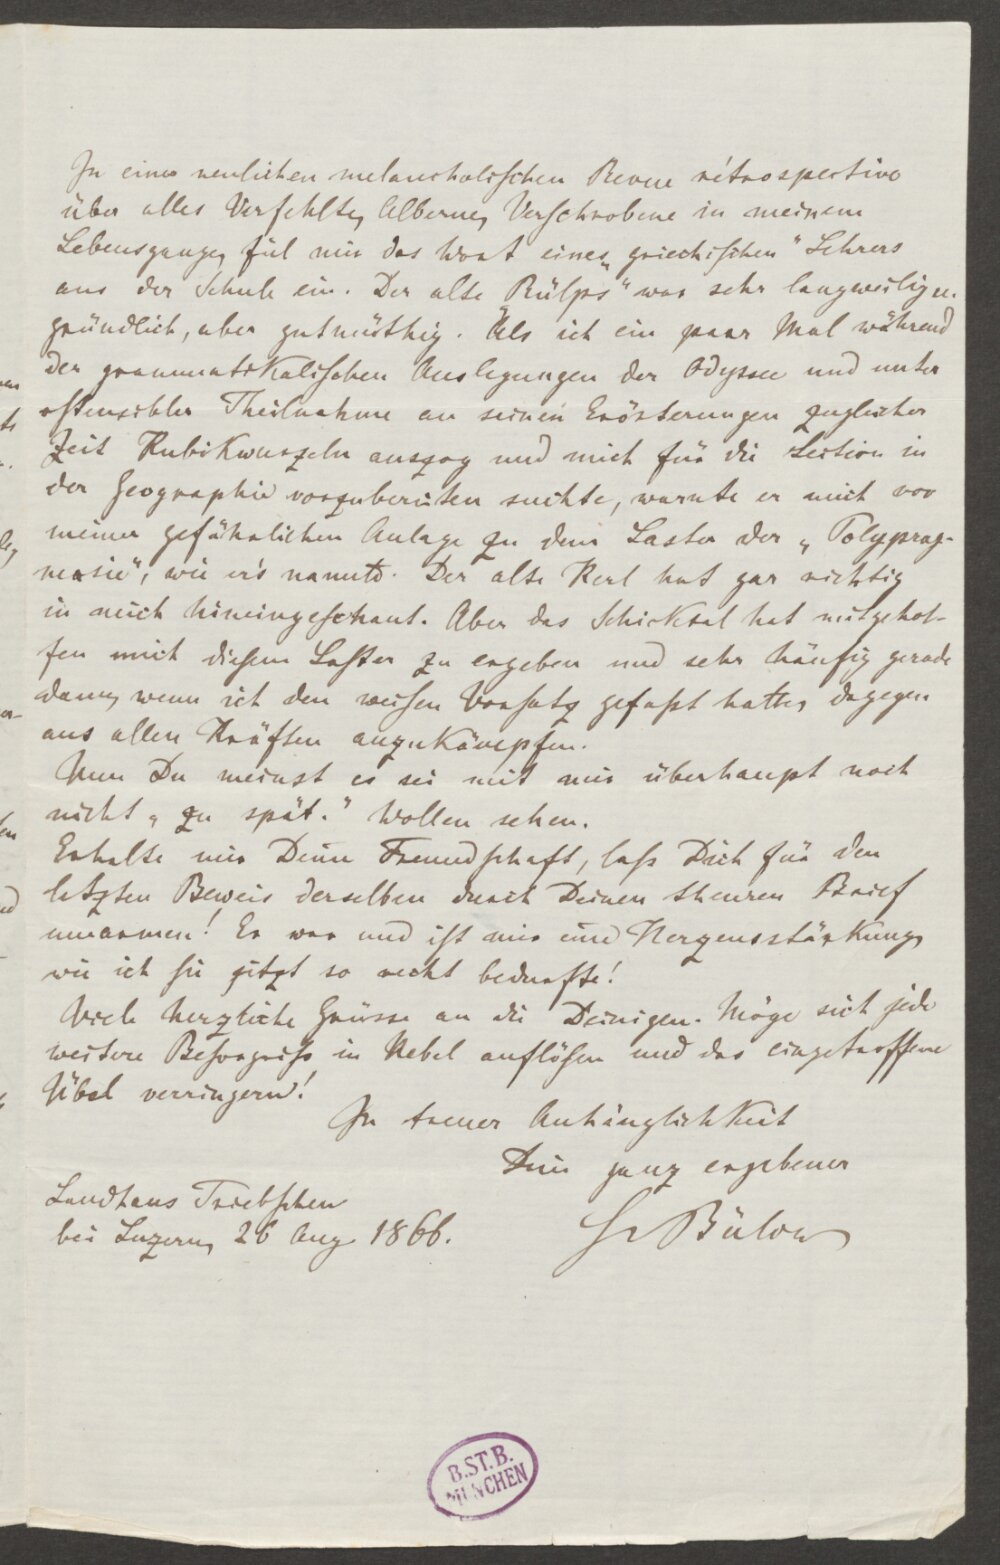 In einer neulichen melancholischen Revue rétrospective
über alles Verfehlte, Alberne, Verschrobene in meinem
Lebensgange, fiel mir das Wort eines „griechischen" Lehrers
aus der Schule ein. Der alte „Rülps" war sehr langweilig u.
gründlich, aber gutmüthig. Als ich ein paar Mal während
der grammatikalischen Auslegungen der Odyssee und unter
ostensibler Theilnahme an seinen Erörterungen zugleicher
Zeit Kubikwurzeln auszog und mich für die Lection in
der Geographie vorzubereiten suchte, warnte er mich vor
meiner gefährlichen Anlage zu dem Laster der „Polyprag-
mosie", wie er's nannte. Der alte Kerl hat gar richtig
in mich hineingeschaut. Aber das Schicksal hat mitgehol-
fen mich diesem Laster zu ergeben und sehr häufig gerade
dann, wenn ich den weisen Vorsatz gefaßt hatte, dagegen
aus allen Kräften anzukämpfen.
Nun Du meinst es sei mit mir überhaupt noch
nicht „zu spät." Wollen sehen.
Erhalte mir Deine Freundschaft, laß Dich für den
letzten Beweis derselben durch Deinen theuren Brief
umarmen! Er war und ist mir eine Herzensstärkung,
wie ich sie jetzt so recht bedurfte!
Viele herzliche Grüsse an die Deinigen. Möge sich jede
weitere Besorgniß in Nebel auflösen und das eingetroffene
Übel verringern!
In treuer Anhänglichkeit
Dein ganz ergebener
Landhaus Triebschen
bei Luzern, 26 Aug 1866.
HvBülow
B.ST.B.
MÜNCHEN